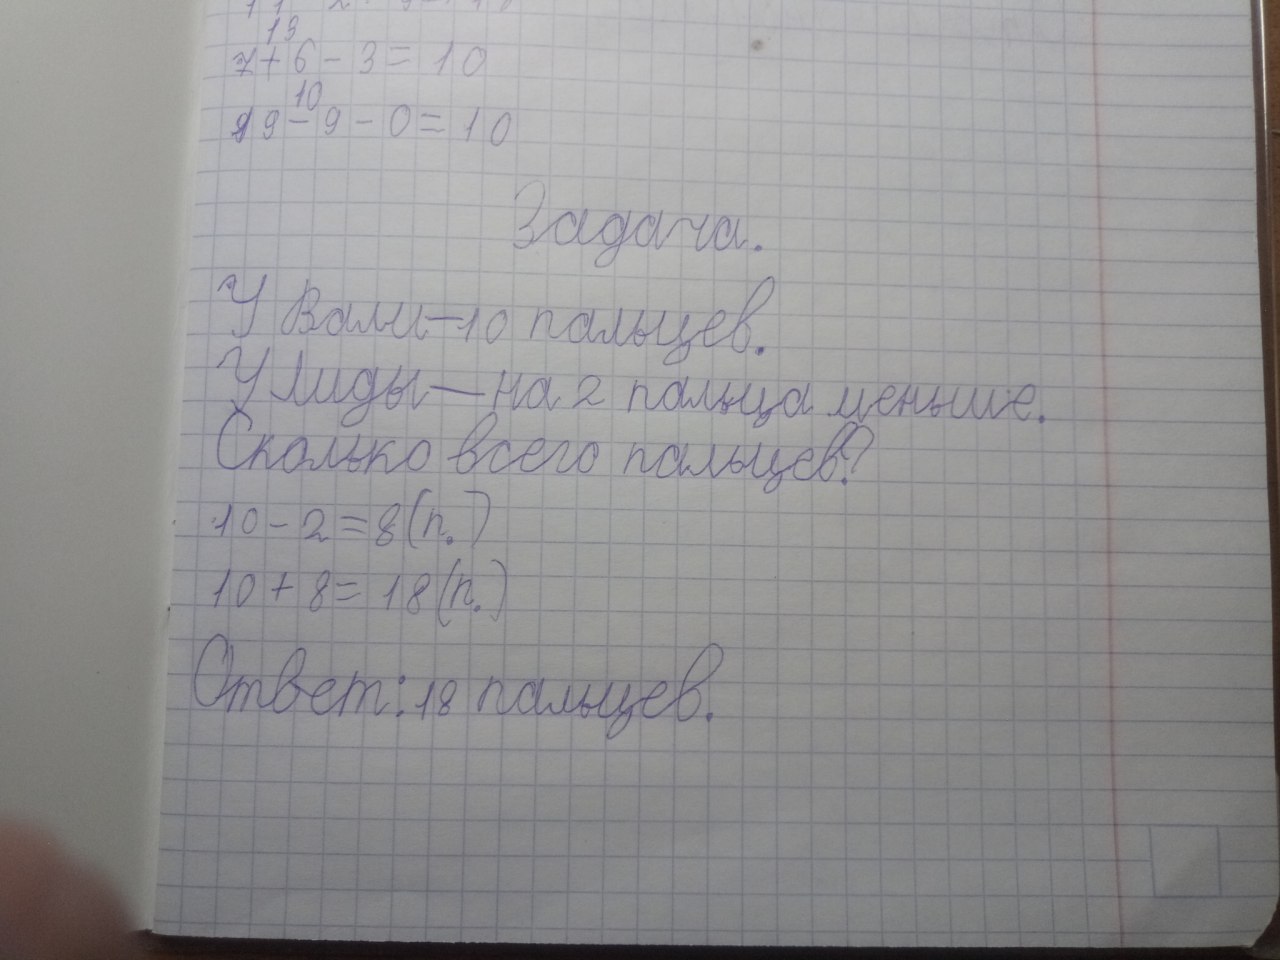 13
7+6-3=10
10
19-9-0=10
Задача.
У Вали-10 пальцев.
У Лиды-на 2 пальца меньше.
Сколько всего пальцев?
10-2=8(п.)
10+8=18(п.)
Ответ:18 пальцев.